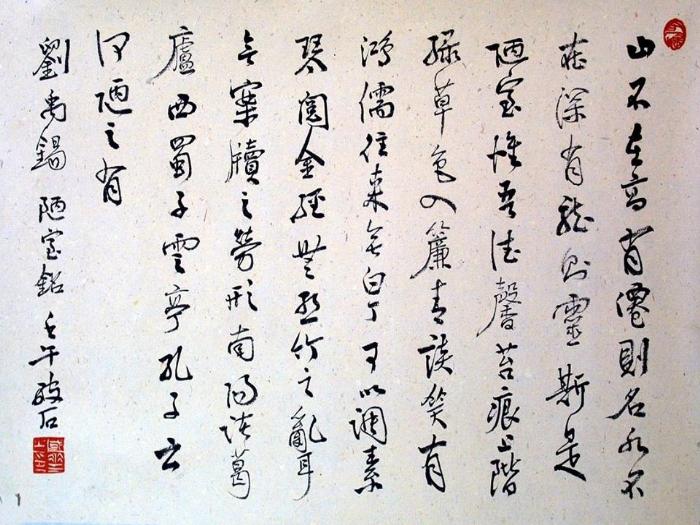 山不在高有僊則名水不
在深有龍則靈斯是
陋室惟吾德馨苔痕上階
綠草色入簾青談笑有
鴻儒往來無白丁可以調素
琴閱金經無絲竹之亂耳
無案牘之勞形南陽諸葛
廬西蜀子雲亭孔子云
何陋之有
劉禹錫 陋室銘 壬午 石